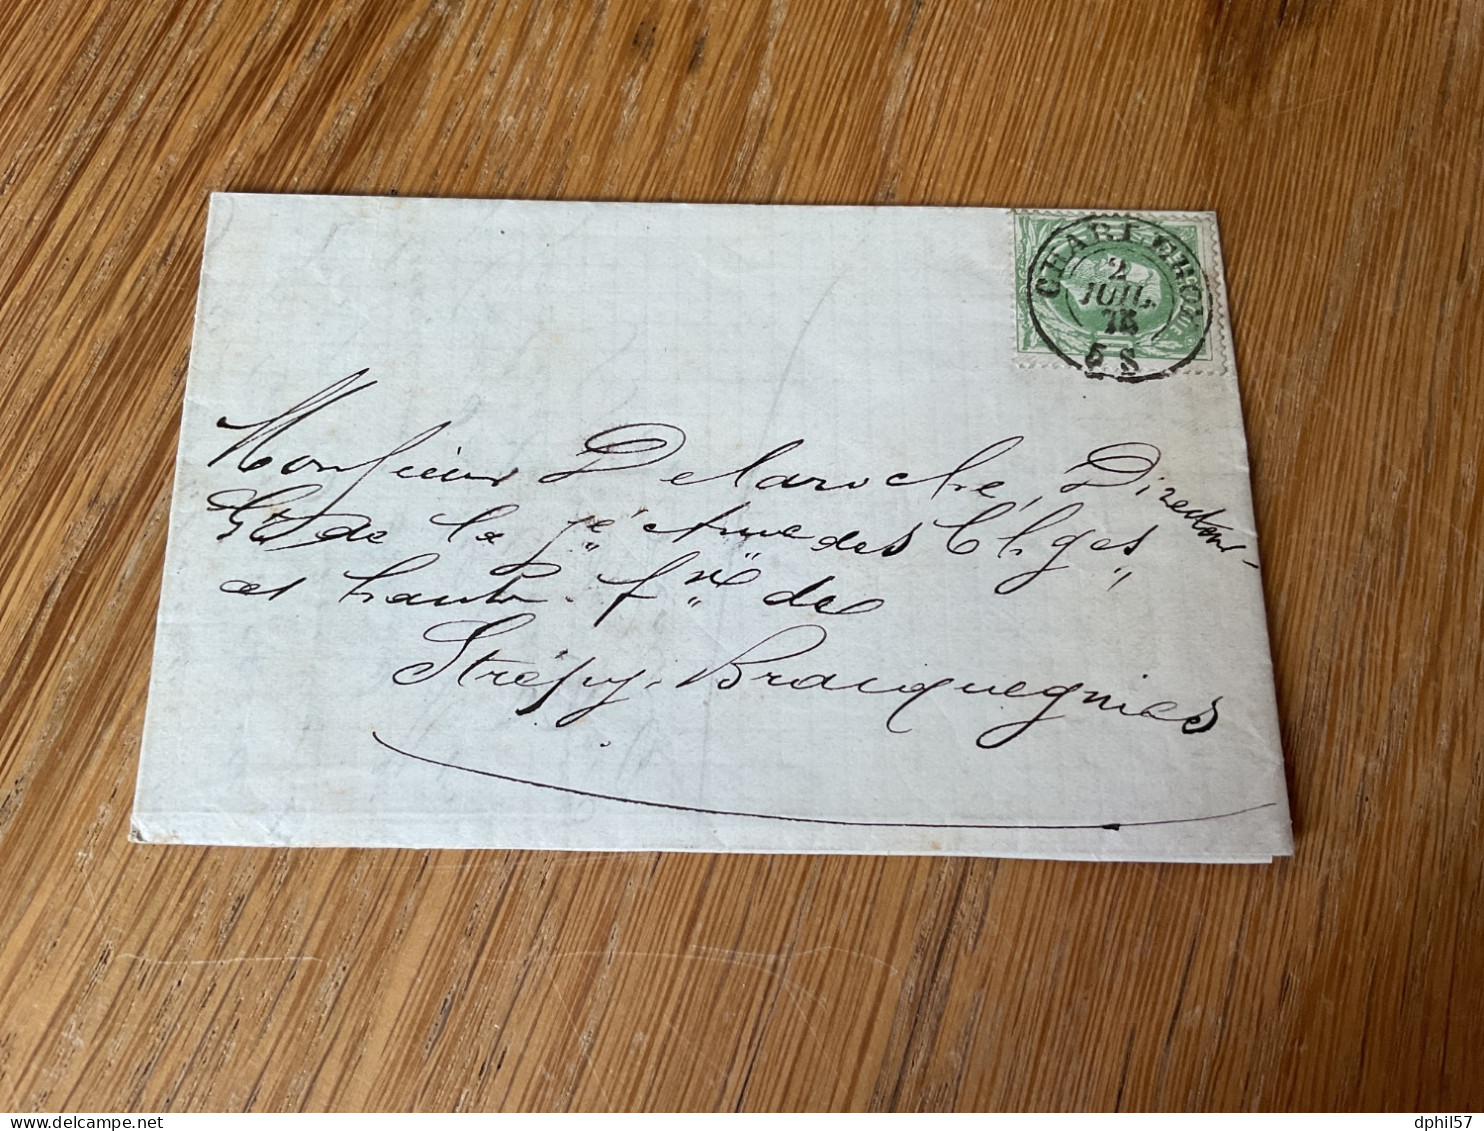 CHARLEROY
2
JUIL
75
5 S
Monsieur Delaroche, Directeur
Gt de la Sté Ame des Chges
et hauts fxx de
Strépy-Bracquegnies
dphil57